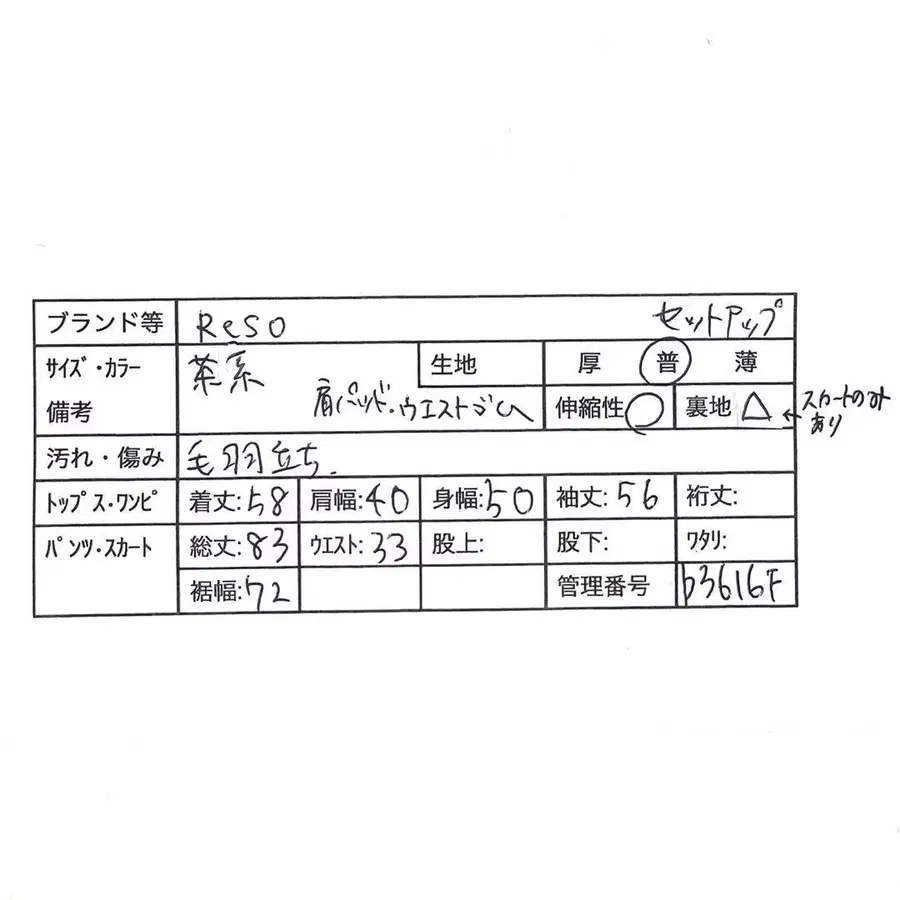 ブランド等 ReSO セットアップ
サイズ・カラー 茶系 生地 厚 普 薄
備考 肩パッド・ウエストゴム 伸縮性 ○ 裏地 △ ← スカートのみ
あり
汚れ・傷み 毛羽立ち.
トップス・ワンピ 着丈:58 肩幅:40 身幅:50 袖丈:56 裄丈:
パンツ・スカート 総丈:83 ウエスト:33 股上: 股下: ワタリ:
裾幅:72 管理番号 b3616F